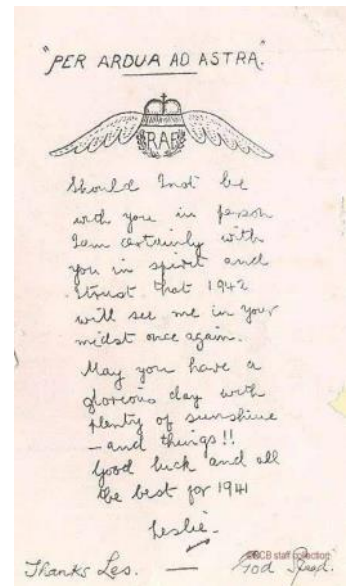 "PER ARDUA AD ASTRA."
RAF
Should I not be
with you in person
I am certainly with
you in spirit and
I trust that 1942
will see me in your
midst once again.
May you have a
glorious day with
plenty of sunshine
– and things!!
Good luck and all
the best for 1941
Leslie.
Thanks Les. — God Speed.
staff collection